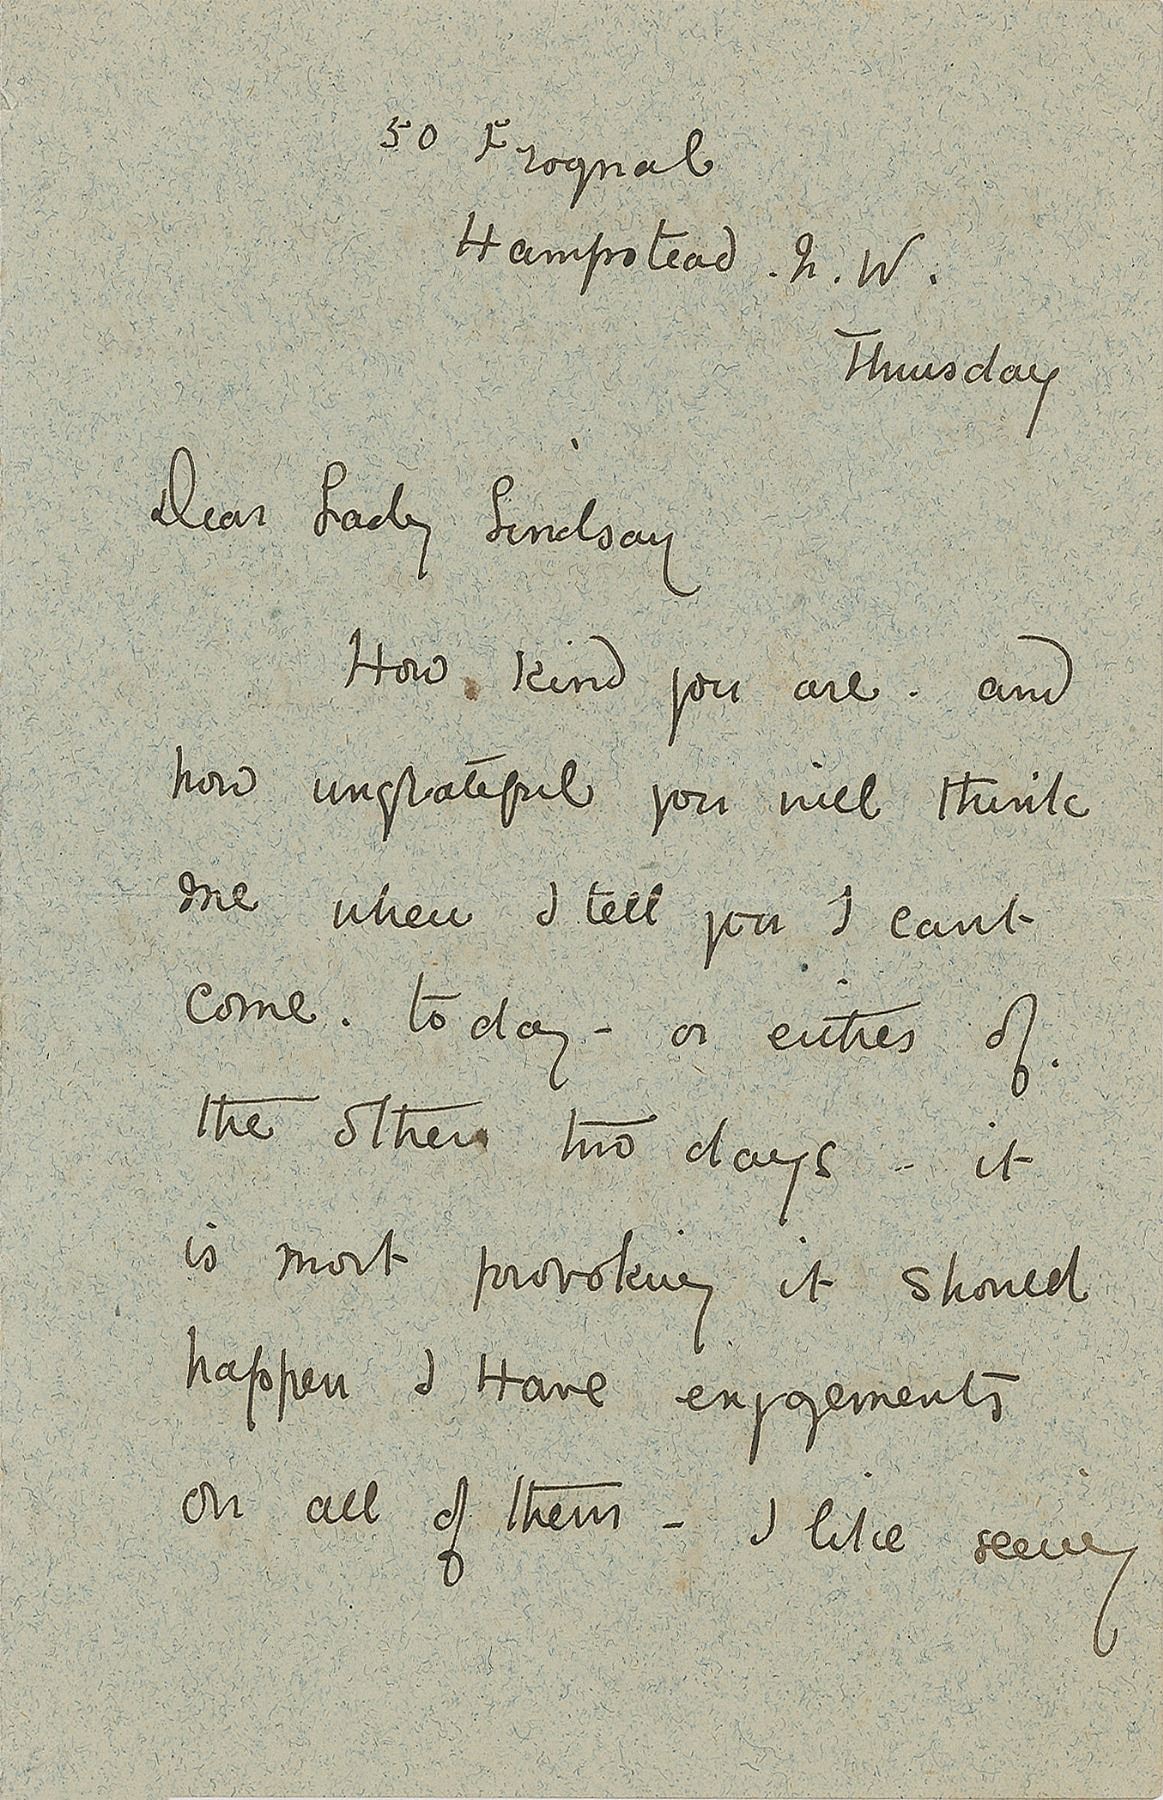 50 Frognal
Hampstead . N. W.
Thursday
Dear Lady Lindsay
How kind you are - and
how ungrateful you will think
me when I tell you I cant
come. to day - or either of
the other two days - it
is most provoking it should
happen I Have engagements
on all of them - I like seeing